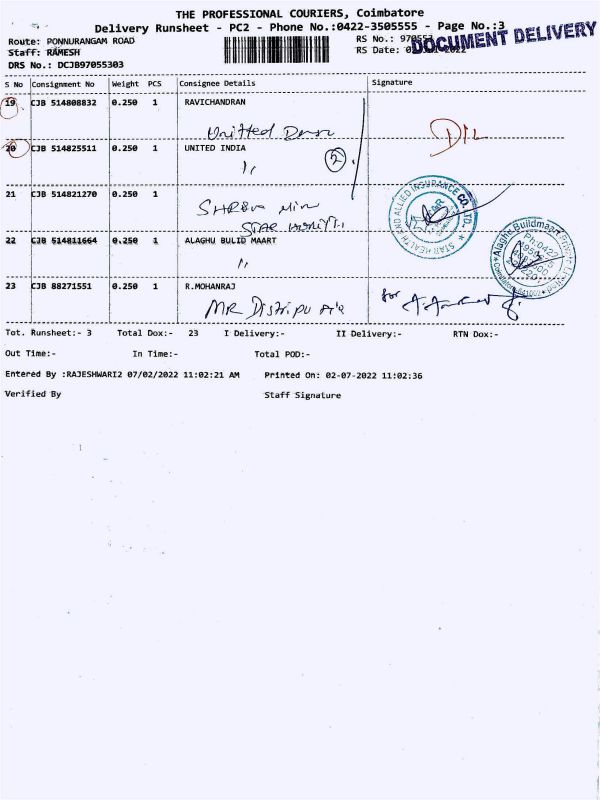 THE PROFESSIONAL COURIERS, Coimbatore
Delivery Runsheet - PC2 - Phone No.:0422-3505555 - Page No.:3
Route: PONNURANGAM ROAD
RS No.:
DOCUMENT DELIVERY
Staff: RAMESH
RS Date:
DRS No.: DCJB97055303
S No Consignment No Weight PCS Consignee Details Signature
19 CJB 514808832 0.250 1 RAVICHANDRAN
Unitted
20 CJB 514825511 0.250 1 UNITED INDIA
2
21 CJB 514821270 0.250 1
STAR
STAR HEALTH AND ALLIED INSURANCE CO. LTD.
22 CJB 514811664 0.250 1 ALAGHU BULID MAART
Alaghu Buildmaart Private Limited
23 CJB 88271551 0.250 1 R.MOHANRAJ
MR
for
Tot. Runsheet:- 3 Total Dox:- 23 I Delivery:- II Delivery:- RTN Dox:-
Out Time:- In Time:- Total POD:-
Entered By :RAJESHWARI2 07/02/2022 11:02:21 AM Printed On: 02-07-2022 11:02:36
Verified By Staff Signature